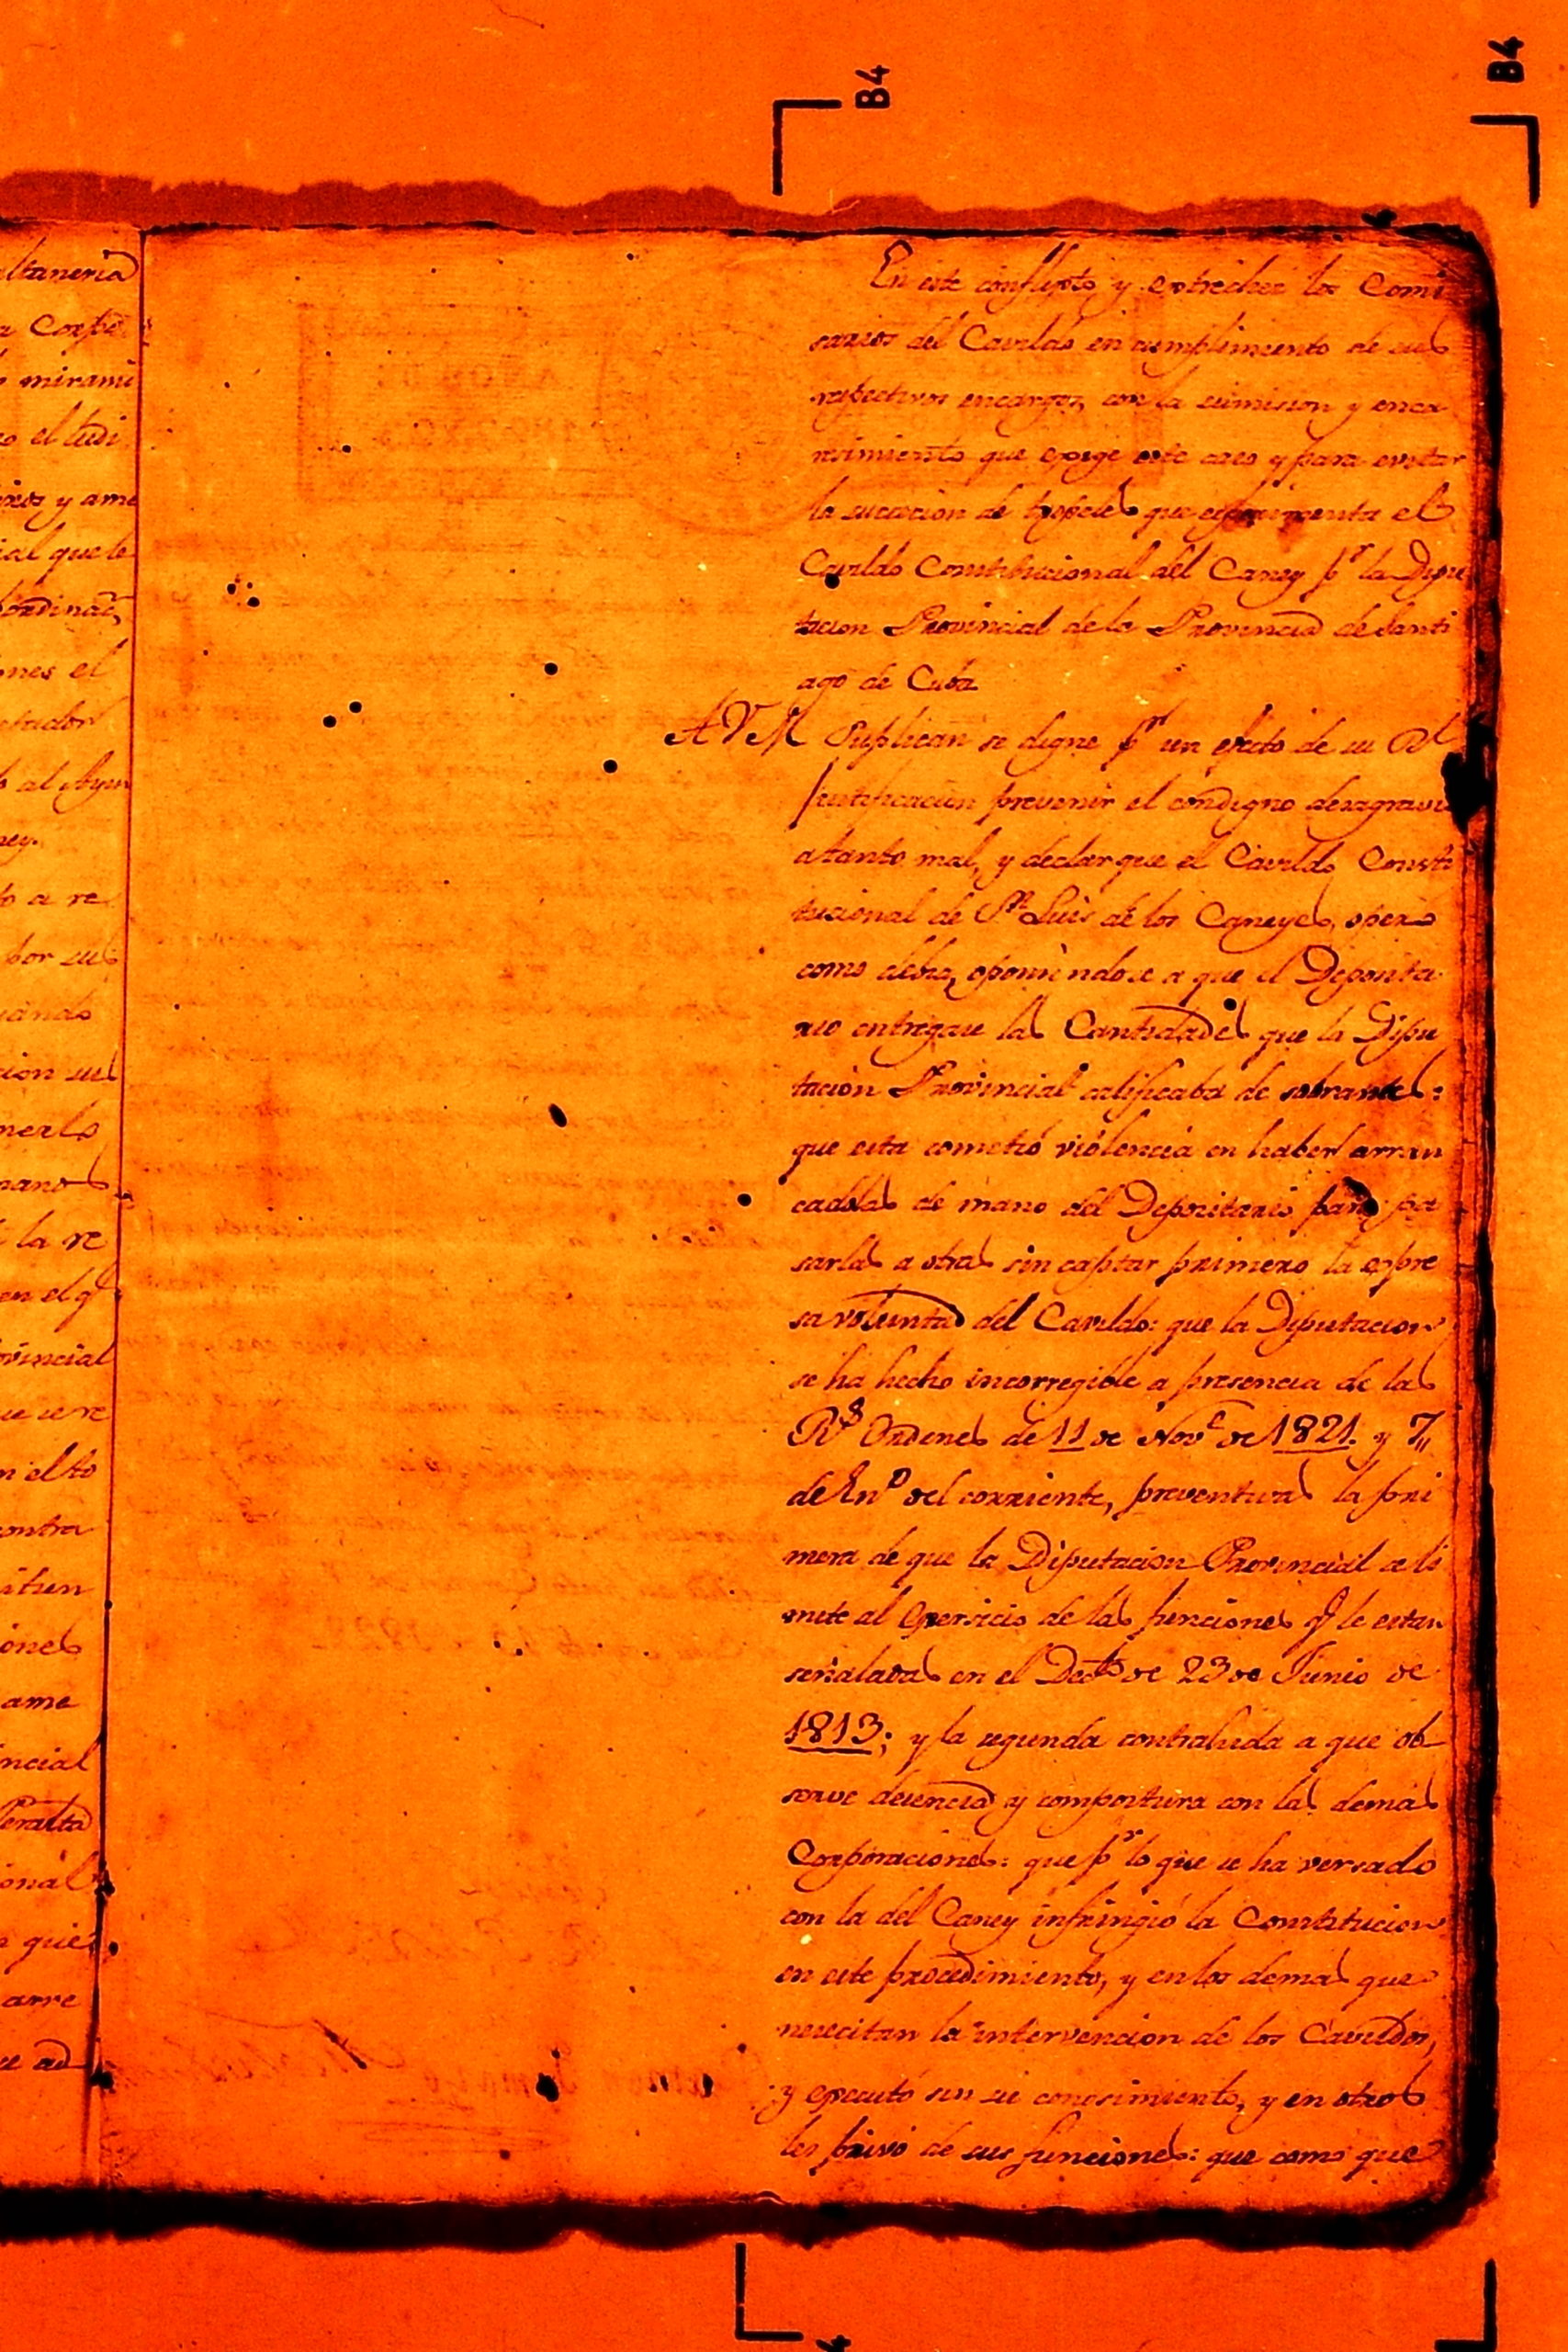 B4
B4
ltaneria
a Corpo
mirami
o el tudi
y ame
ial que le
ordinac.
ones el
al Ayun
ney.
to a re
por sus
cion sus
nerlo
manos
la re
en el q.e
ovincial
ue se re
n el to
contra
iones
ame
incial
Peralta
ional
n que
arre
se ad
En este conflicto y estrechez los Comi
sarios del Cavildo en cumplimiento de sus
respectivos encargos, con la sumision y enca
resimiento que exige este caso y para evitar
la sucecion de tropeles que esperimenta el
Cavildo Constitucional del Caney p.r la Dipu
tacion Provincial de la Provincia de Santi
ago de Cuba
A V M Suplican se digne p.r un efecto de su R.l
justificacion prevenir el condigno desagravio
a tanto mal, y declar que el Cavildo Consti
tucional de S.n Luis de los Caneyes, operó
como debia, oponiendose a que el Deposita
rio entregase las Cantidades que la Dipu
tación Provincial calificaba de sobrantes:
que esta cometió violencia en haber arran
cadolas de mano del Depositario para pa
sarlas a otras sin captar primero la espre
sa voluntad del Cavildo: que la Diputacion
se ha hecho incorregible a presencia de las
R.s Ordenes de 11 de Nov.e de 1821. y 7,,
de En.o del corriente, preventivas la pri
mera de que la Diputacion Provincial se li
mite al egersicio de las funciones q.e le estan
señaladas en el Dec.to de 23 de Junio de
1813; y la segunda contrahida a que ob
serve desencia y compostura con las demas
Corporaciones: que p.r lo que se ha versado
con la del Caney infringió la Constitucion
en este procedimiento, y en los demas que
nececitan la intervencion de los Cavildos,
y egecutó sin su conosimiento, y en otros
les privó de sus funciones: que como que